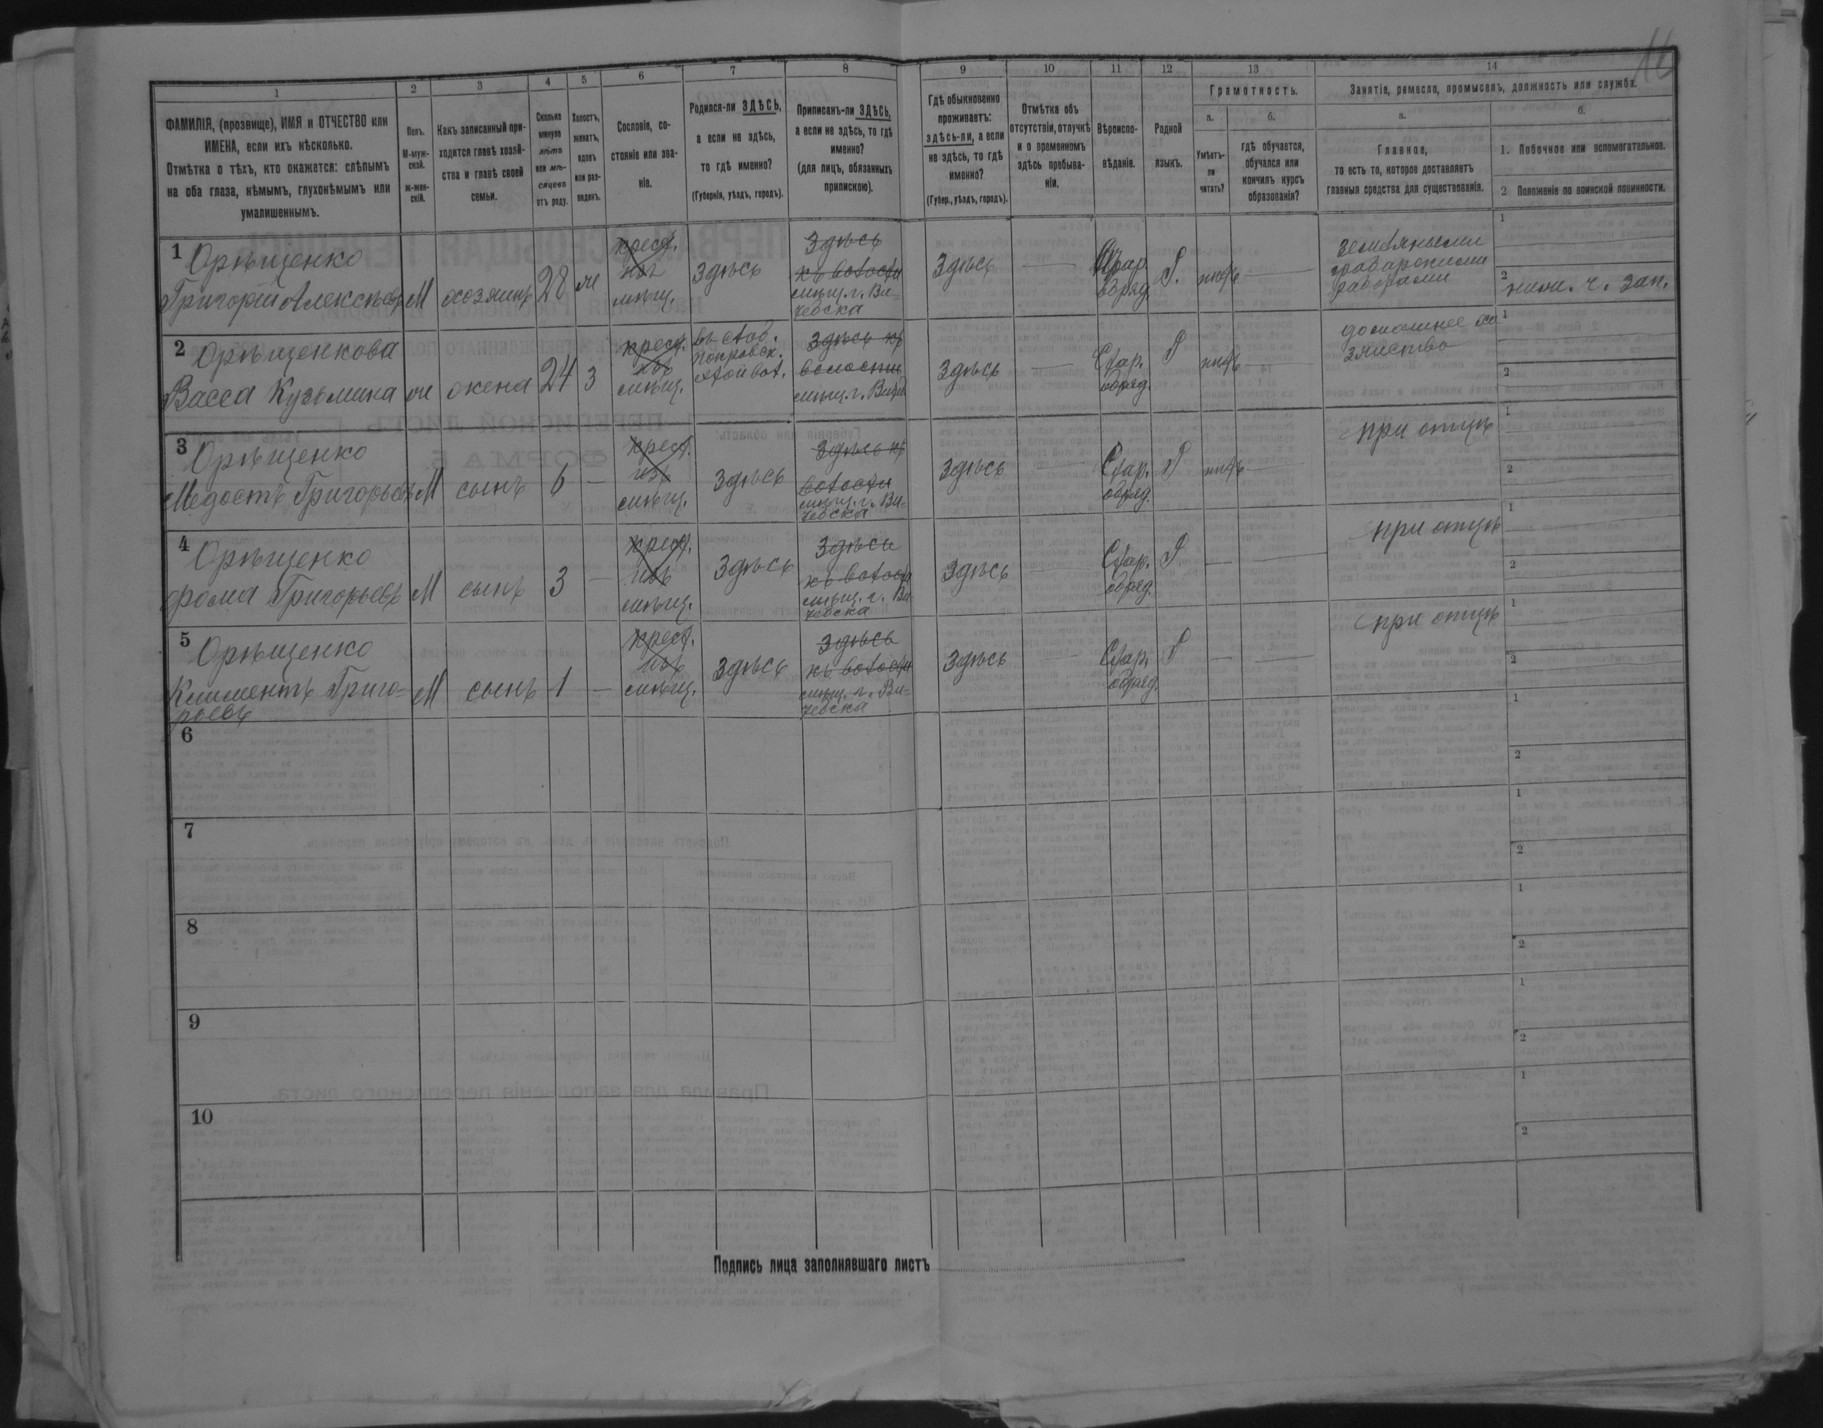 16
1 2 3 4 5 6 7 8 9 10 11 12 13 14
ФАМИЛІЯ, (прозвище), ИМЯ и ОТЧЕСТВО или
ИМЕНА, если ихъ нѣсколько.
Отмѣтка о тѣхъ, кто окажется: слѣпымъ
на оба глаза, нѣмымъ, глухонѣмымъ или
умалишеннымъ.
Полъ.
М-муж-
ской.
ж-жен-
скій.
Какъ записанный при-
ходится главѣ хозяй-
ства и главѣ своей
семьи.
Сколько
минуло
лѣтъ
или мѣ-
сяцевъ
отъ роду.
Холостъ,
женатъ,
вдовъ
или раз-
веденъ.
Сословіе, со-
стояніе или зва-
ніе.
Родился-ли ЗДѢСЬ,
а если не здѣсь,
то гдѣ именно?
(Губернія, уѣздъ, городъ).
Приписанъ-ли ЗДѢСЬ,
а если не здѣсь, то гдѣ
именно?
(для лицъ, обязанныхъ
припискою).
Гдѣ обыкновенно
проживаетъ:
здѣсь-ли, а если
не здѣсь, то гдѣ
именно?
(Губер., уѣздъ, городъ).
Отмѣтка объ
отсутствіи, отлучкѣ
и о временномъ
здѣсь пребыва-
ніи.
Вѣроиспо-
вѣданіе.
Родной
языкъ.
Грамотность.
а.
Умѣетъ-
ли
читать?
б.
гдѣ обучается,
обучался или
кончилъ курсъ
образованія?
Занятіе, ремесло, промыселъ, должность или служба.
а.
Главное,
то есть то, которое доставляетъ
главныя средства для существованія.
б.
1. Побочное или вспомогательное.
2 Положеніе по воинской повинности.
1 Орѣщенко
Григорій Алексѣевъ
М
хозяинъ
28
ж
крест.
мѣщ.
здѣсь
Здѣсь
къ волости
мѣщ. г. Ви-
тебска
Здѣсь
Стар.
обряд.
Р.
нѣтъ
земляными
грабарскими
работами
1
2 нин. ч. зап.
2 Орѣщенкова
Васса Кузьмина
ж
жена
24
З
крест.
мѣщ.
въ слоб.
Покровск.
Здѣсь къ
волости
мѣщ. г. Витеб
Здѣсь
Стар.
обряд.
Р
нѣтъ
домашнее хо
зяйство
1
2
3 Орѣщенко
Модестъ Григорьевъ
М
сынъ
6
крест.
мѣщ.
Здѣсь
Здѣсь къ
волости
мѣщ. г. Ви-
тебска
Здѣсь
Стар.
обряд.
Р
нѣтъ
при отцѣ
1
2
4 Орѣщенко
Фома Григорьевъ
М
сынъ
3
крест.
мѣщ.
Здѣсь
Здѣсь
къ волости
мѣщ. г. Ви
тебска
Здѣсь
Стар.
обряд.
Р
при отцѣ
1
2
5 Орѣщенко
Климентъ Григо-
рьевъ
М
сынъ
1
крест.
мѣщ.
Здѣсь
Здѣсь
къ волости
мѣщ. г. Ви-
тебска
Здѣсь
Стар.
обряд.
Р
при отцѣ
1
2
6
1
2
7
1
2
8
1
2
9
1
2
10
1
2
Подпись лица заполнявшаго листъ